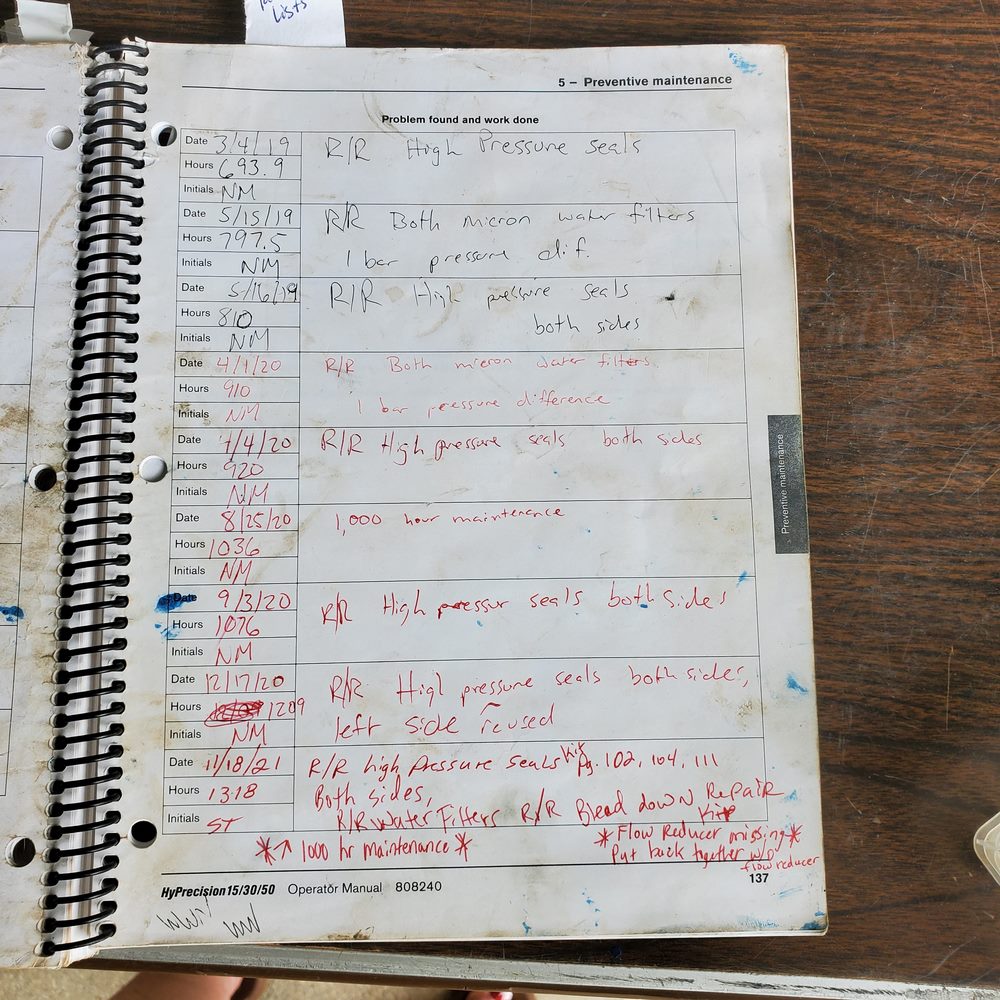 Lists
5 – Preventive maintenance
Problem found and work done
Date 3/4/19 R/R High Pressure seals
Hours 693.9
Initials NM
Date 5/15/19 R/R Both micron water filters
Hours 797.5
Initials NM 1 bar pressure dif.
Date 5/16/19 R/R High pressure seals
Hours 810 both sides
Initials NM
Date 4/1/20 R/R Both micron water filters
Hours 910
Initials NM 1 bar pressure difference
Date 4/4/20 R/R High pressure seals both sides
Hours 920
Initials NM
Date 8/25/20 1,000 hour maintenance
Hours 1036
Initials NM
Date 9/3/20 R/R High pressur seals both sides
Hours 1076
Initials NM
Date 12/17/20 R/R High pressure seals both sides,
Hours 1209 left side reused
Initials NM
Date 11/18/21 R/R high Pressure seals kit pg. 102, 104, 111
Hours 1318 Both sides,
Initials ST R/R Water Filters R/R Bleed down Repair Kit
*↑ 1000 hr maintenance*
*Flow Reducer missing*
Put back together w/o
flow reducer
Preventive maintenance
HyPrecision 15/30/50 Operator Manual 808240
137